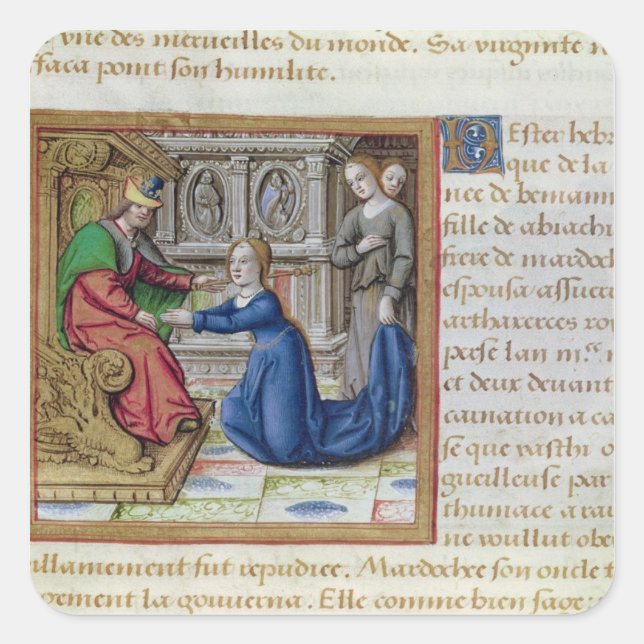 vne des merueilles du monde. Sa virginite n
ffaca point son humilite.
Ester hebr
que de la
nee de beniamin
fille de abrachi
frere de mardoch
espousa assuere
artharerces roy
perse lan m.
et deux deuant
carnation a ca
se que vasthi o
gueilleuse par
thumace a rai
ne voullut obe
llamement fut repudiee. Mardochee son oncle t
pement la gouuerna. Elle comme bien sage